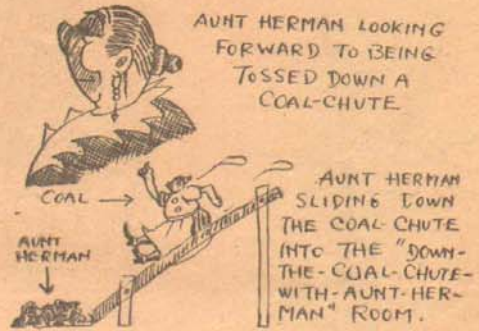 AUNT HERMAN LOOKING
FORWARD TO BEING
TOSSED DOWN A
COAL-CHUTE
COAL →
AUNT
HERMAN
AUNT HERMAN
SLIDING DOWN
THE COAL CHUTE
INTO THE "DOWN-
THE-COAL-CHUTE-
WITH-AUNT-HER-
MAN" ROOM.